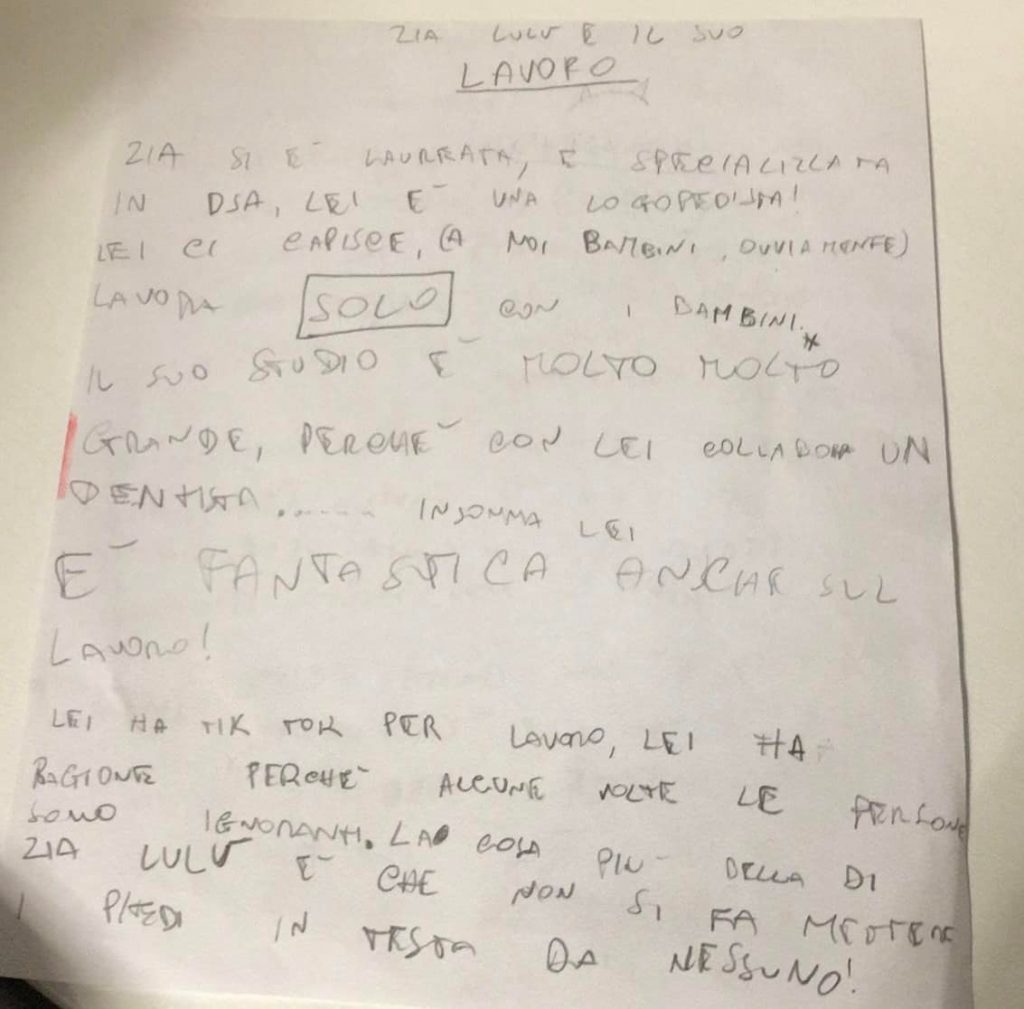 ZIA LULÙ E IL SUO
LAVORO
ZIA SI È LAUREATA, E SPECIALIZZATA
IN DSA, LEI È UNA LOGOPEDISTA!
LEI CI CAPISCE, (A NOI BAMBINI, OVVIAMENTE)
LAVORA SOLO CON I BAMBINI.*
IL SUO STUDIO È MOLTO MOLTO
GRANDE, PERCHÈ CON LEI COLLABORA UN
DENTISTA....... INSOMMA LEI
È FANTASTICA ANCHE SUL
LAVORO!
LEI HA TIK TOK PER LAVORO, LEI HA
RAGIONE PERCHÈ ALCUNE VOLTE LE PERSONE
SONO IGNORANTI. LA COSA PIÙ BELLA DI
ZIA LULÙ È CHE NON SI FA METTERE
I PIEDI IN TESTA DA NESSUNO!